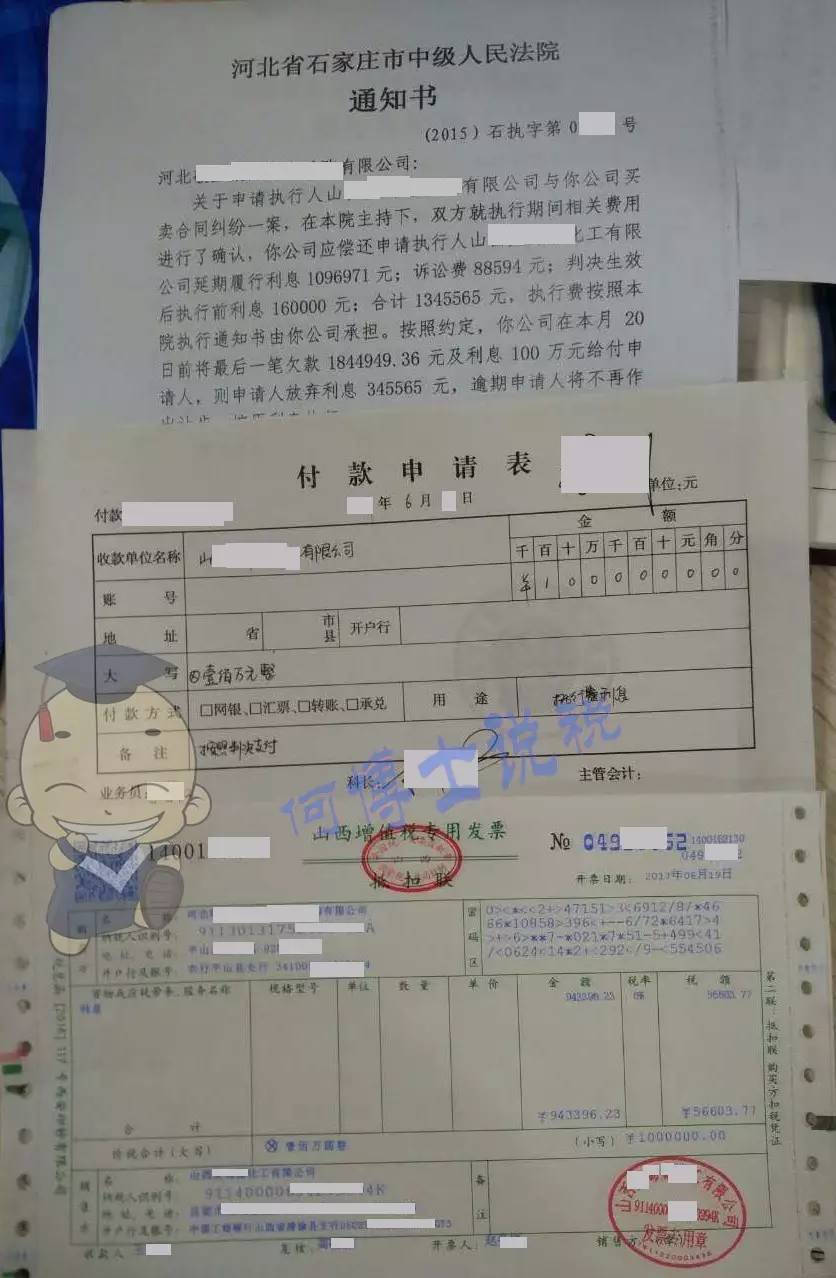 河北省石家庄市中级人民法院
通知书
(2015)石执字第0 号
河北 有限公司:
关于申请执行人山 有限公司与你公司买
卖合同纠纷一案,在本院主持下,双方就执行期间相关费用
进行了确认,你公司应偿还申请执行人山 化工有限
公司延期履行利息1096971元;诉讼费88594元;判决生效
后执行前利息160000元;合计1345565元,执行费按照本
院执行通知书由你公司承担。按照约定,你公司在本月20
日前将最后一笔欠款1844949.36元及利息100万元给付申
请人,则申请人放弃利息345565元,逾期申请人将不再作
付款申请表
单位:元
付款 年6月 日
金额
收款单位名称 山 有限公司 千百十万千百十元角分
账号 ¥100000000
地址 省 市县 开户行
大写 壹佰万元整
付款方式 □网银、□汇票、□转账、□承兑 用途 利息
备注 按照判决支付
业务员: 科长: 主管会计:
何博士说税
山西增值税专用发票
抵扣联
14001 № 04 62 1400162130
049 2
开票日期: 2017年06月19日
名称: 有限公司
纳税人识别号: 9113013175 A
地址、电话: 平山
开户行及账号: 农行平山县支行
密码区
0>*<*<<2+>47151>3<6912/8/*46
66*10858>396<+--6/72*6417>4
>+>6>**7-*021*7*51-5+499<41
/<0624<14*2+<292</9-<554506
货物或应税劳务、服务名称 规格型号 单位 数量 单价 金额 税率 税额
943396.23 6% 56603.77
合计 ¥943396.23 ¥56603.77
价税合计(大写) ⊗壹佰万圆整 (小写)¥1000000.00
名称: 山西 化工有限公司
纳税人识别号: 91140000 4K
地址、电话:
开户行及账号: 中国工商银行山西省清徐县支行
备注
收款人: 复核: 开票人: 销售方:
第二联:抵扣联 购买方扣税凭证
发票专用章